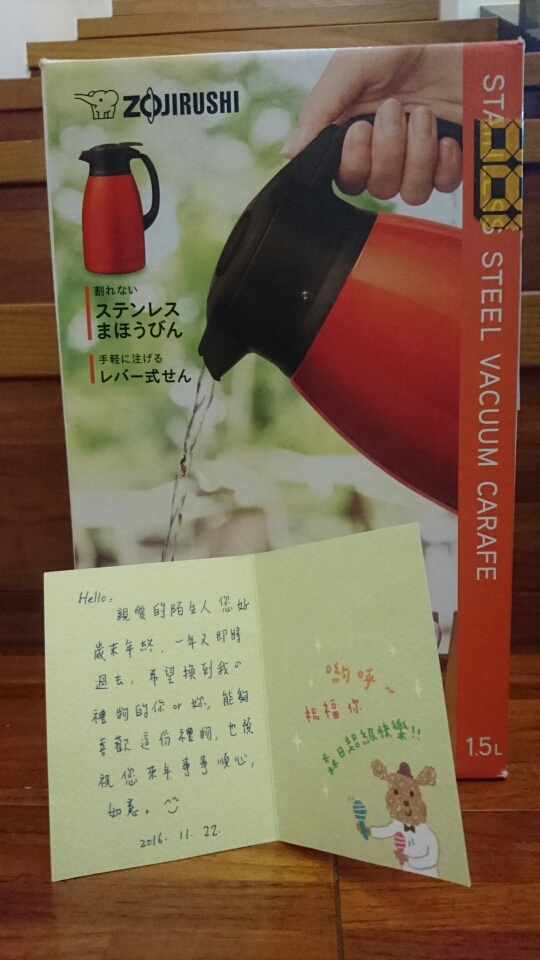 ZOJIRUSHI
割れない
ステンレス
まほうびん
手軽に注げる
レバー式せん
STAINLESS STEEL VACUUM CARAFE
1.5L
Hello:
親愛的陌生人您好
歲末年終,一年又即將
過去,希望換到我の
禮物的你 or 妳,能夠
喜歡這份禮物,也預
祝您來年事事順心,
如意。^^
2016. 11. 22.
喲呼~
祝福你
末日超級快樂!!